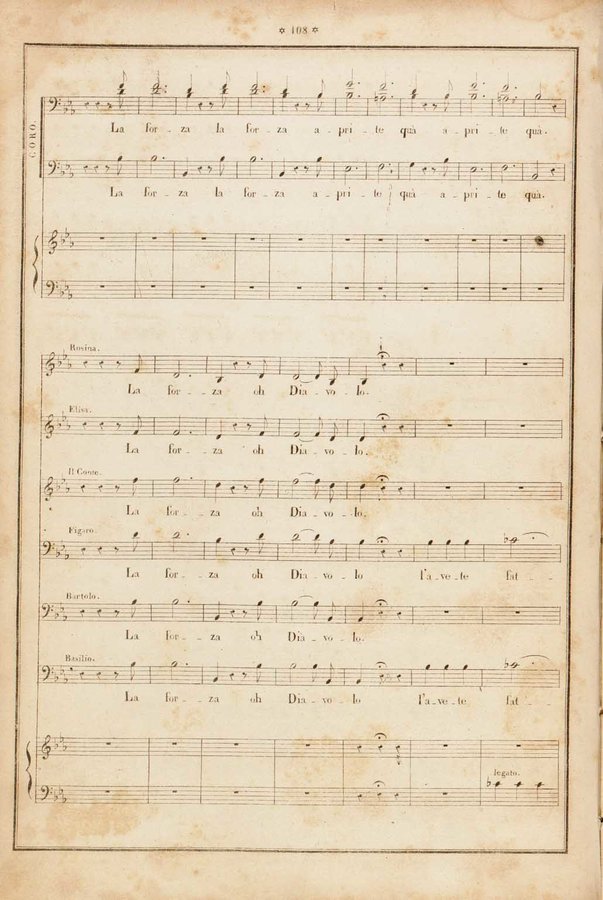 ✡ 108 ✡
CORO.
La for - za la for - za a - pri - te quà a - pri - te quà.
La for - za la for - za a - pri - te quà a - pri - te quà.
Rosina.
La for - - za oh Dia - vo - lo.
Elisa.
La for - - za oh Dia - vo - lo.
Il Conte.
La for - - za oh Dia - vo - lo.
Figaro.
La for - - za oh Dia - vo - lo l'a - ve - te fat - -
Bartolo.
La for - - za oh Dia - vo - lo.
Basilio.
La for - - za oh Dia - vo - lo l'a - ve - te fat - -
legato.